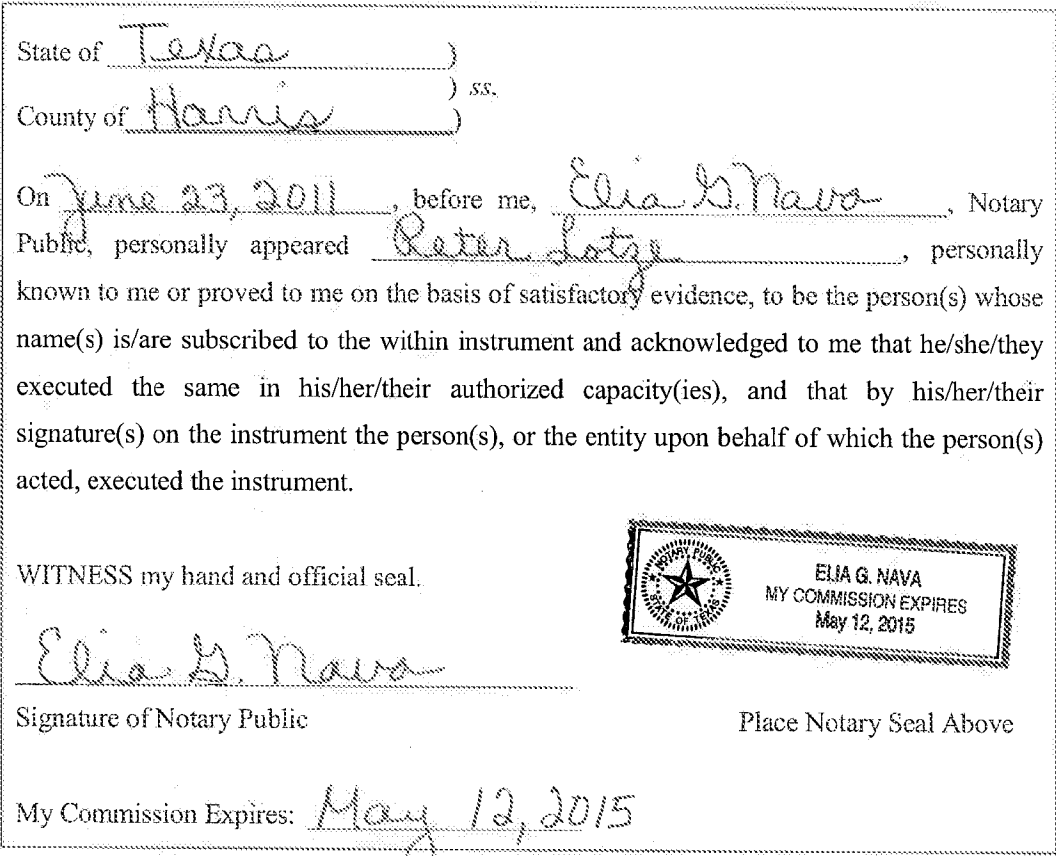 State of Texas )
) ss.
County of Harris )
On June 23, 2011, before me, Elia G. Nava, Notary
Public, personally appeared Peter Lotze, personally
known to me or proved to me on the basis of satisfactory evidence, to be the person(s) whose
name(s) is/are subscribed to the within instrument and acknowledged to me that he/she/they
executed the same in his/her/their authorized capacity(ies), and that by his/her/their
signature(s) on the instrument the person(s), or the entity upon behalf of which the person(s)
acted, executed the instrument.
WITNESS my hand and official seal.
NOTARY PUBLIC
STATE OF TEXAS
ELIA G. NAVA
MY COMMISSION EXPIRES
May 12, 2015
Elia G. Nava
Signature of Notary Public
Place Notary Seal Above
My Commission Expires: May 12, 2015